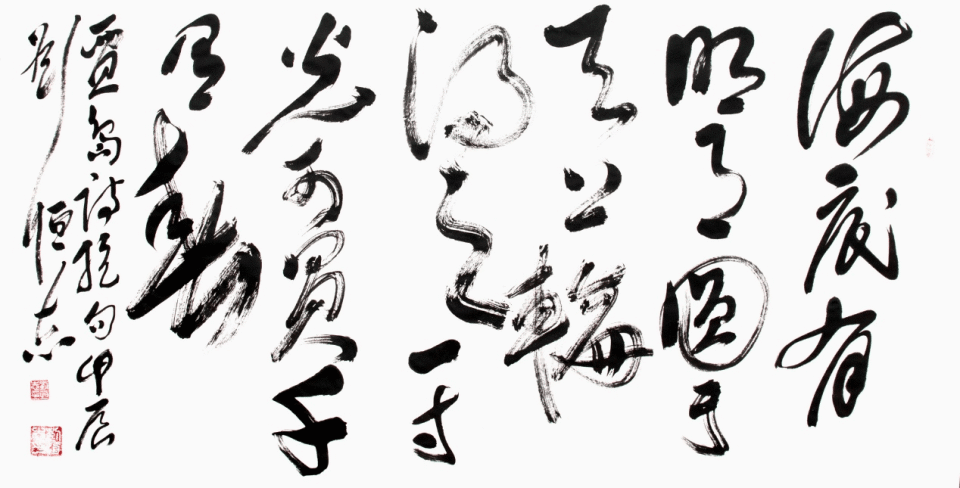 海底有
明月圓于
天上輪
得之一寸
光可買千
里春
賈島詩絕句甲辰
劉恒志